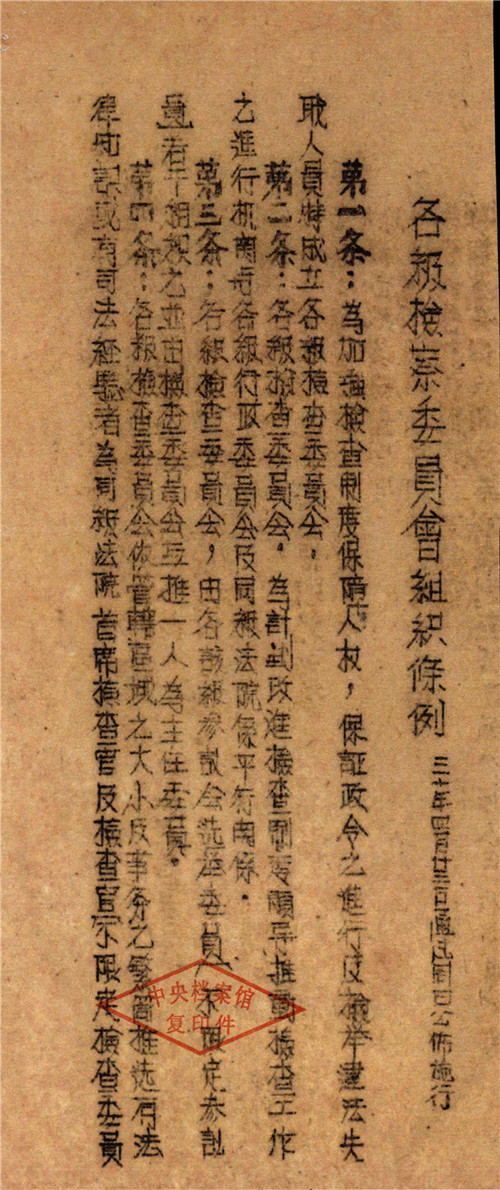 各級檢察委員會組織條例 三十年四月廿三日通過同日公佈施行
第一条：為加強檢查制度保障人权，保証政令之進行及檢举違法失
职人員特成立各級檢查委員会，
第二条：各級檢查委員会，為計劃改進檢查制度領导推動檢查工作
之進行机関与各級行政委員会及同級法院係平行関係。
第三条：各級檢查委員会，由各該級参議会选举委員（不限定参議
員）若干組織之並由檢查委員会互推一人為主任委員。
第四条：各級檢查委員会依管轄區域之大小及事务之繁簡推选有法
律知識或有司法經驗者為同級法院首席檢查官及檢查官不限定檢查委員
中央档案馆
复印件